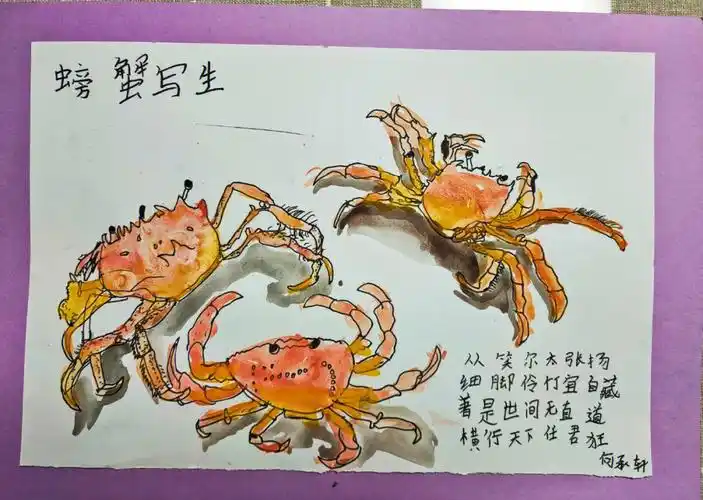 螃蟹写生
从笑尔太张扬
细脚伶仃宜自藏
著是世间无直道
横行天下任君狂
何承轩